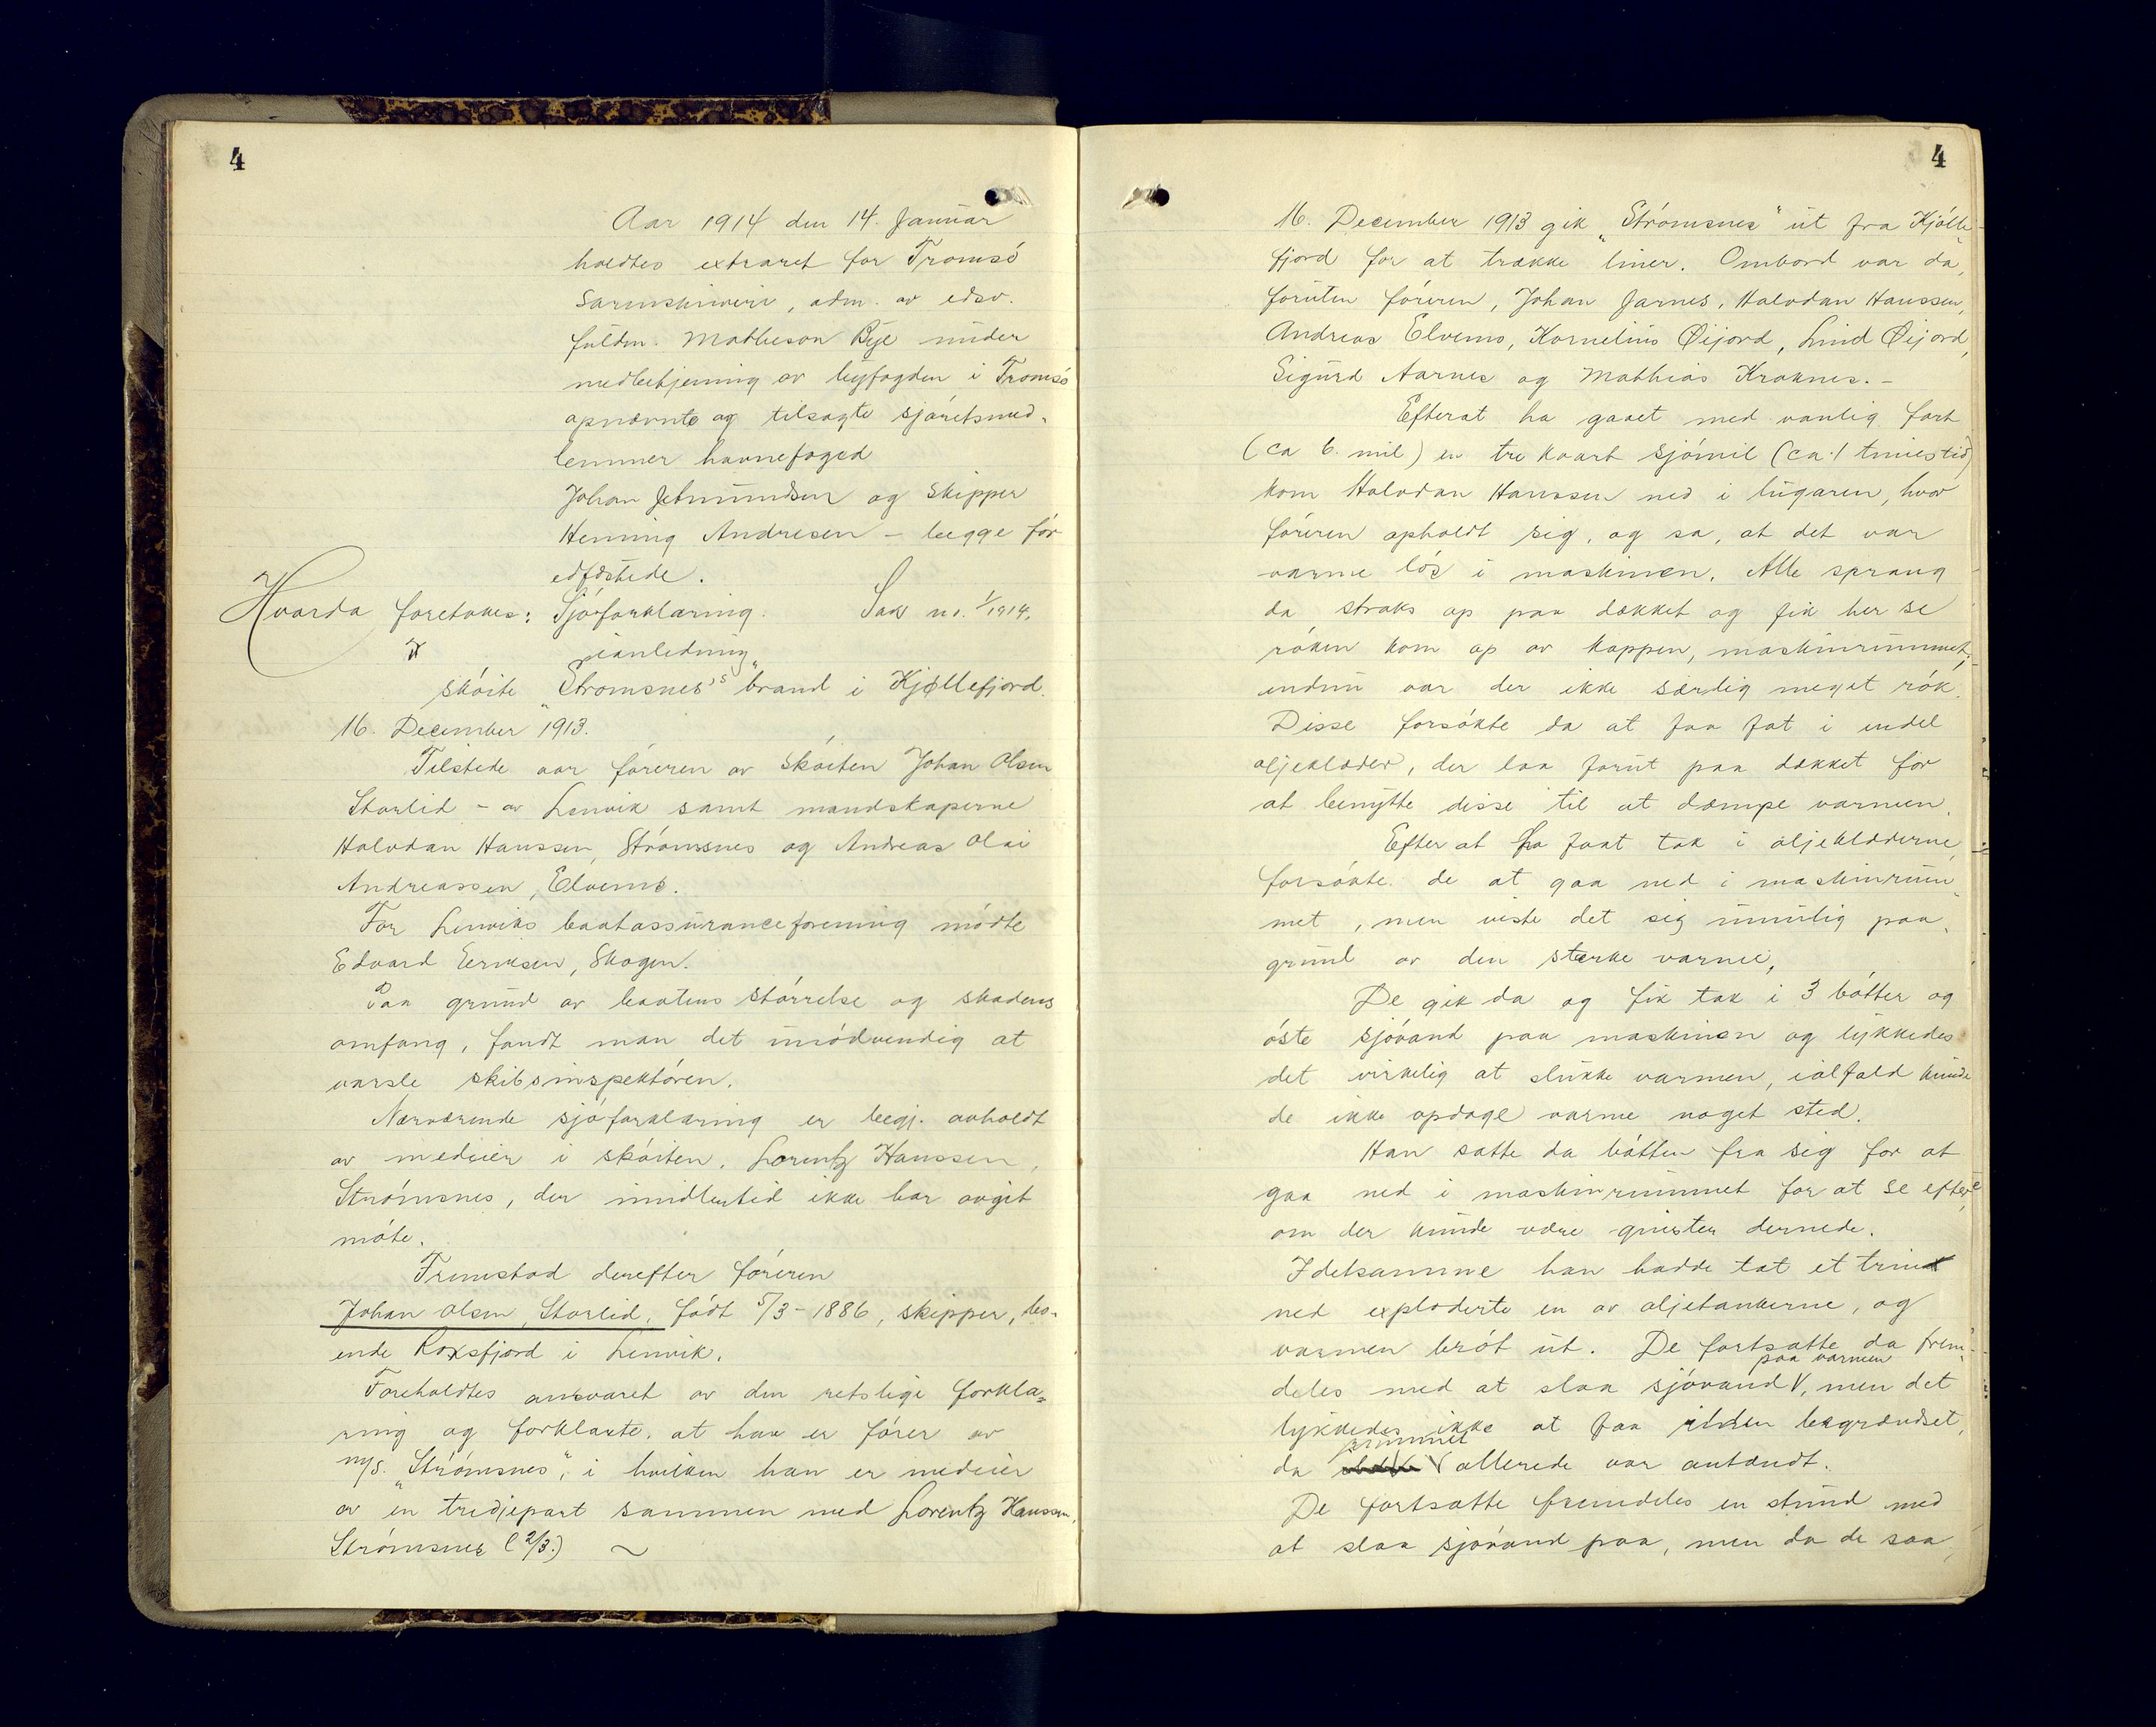 4
Aar 1914 den 14. Januar
holdtes extraret for Tromsö
Sorenskriveri, adm. av edsv.
fuldm. Matheson Bye under
medbetjening av byfogden i Tromsö
opnævnte og tilsagte sjöretsmed-
lemmer havnefoged
Johan Jetmundsen og skipper
Henning Andresen – begge för
edfæstede.
Hvorda foretokes: Sjöforklaring. Sak no. 1/1914.
i anledning
sköite "Strömsnes's" brand i Kjøllefjord
16. December 1913.
Tilstede var föreren av sköiten Johan Olsen
Storlid – av Lenvik samt mandskaperne
Halvdan Hanssen, Strömsnes og Andreas Olai
Andreassen, Elvemo.
For Lenviks baatassuranceforening mödte
Edvard Eriksen, Skogen.
Paa grund av baatens störrelse og skadens
omfang, fandt man det unödvendig at
varsle skibsinspektören.
Nærværende sjöforklaring er begj. avholdt
av medeier i sköiten, Lorentz Hanssen,
Strömsnes, der imidlertid ikke har avgit
möte.
Fremstod derefter föreren
Johan Olsen, Storlid, födt 5/3 – 1886, skipper, bo-
ende Roxsfjord i Lenvik.
Foreholdtes ansvaret av den retslige forkla-
ring og forklarte, at han er förer av
m/s. "Strömsnes", i hvilken han er medeier
av en tredjepart sammen med Lorentz Hanssen,
Strömsnes (2/3.)
4
16. December 1913 gik "Strömsnes" ut fra Kjölle-
fjord for at trække liner. Ombord var da,
foruten föreren, Johan Jarnes, Halvdan Hanssen,
Andreas Elvemo, Kornelius Øijord, Lind Øijord,
Sigurd Aarnes og Mathias Kraknes. –
Efterat ha gaaet med vanlig fart
(ca 6. mil) en tre kvart sjömil (ca. 1 times tid)
kom Halvdan Hanssen ned i lugaren, hvor
föreren opholdt sig, og sa, at det var
varme lös i maskinen. Alle sprang
da straks op paa dækket og fik her se
röken kom op av kappen, maskinrummet;
endnu var der ikke særlig meget rök.
Disse forsökte da at faa fat i endel
oljeklæder, der laa forut paa dækket for
at benytte disse til at dæmpe varmen.
Efter at ha faat tak i oljeklæderne,
forsökte de at gaa ned i maskinrum-
met, men viste det sig umulig paa
grund av den sterke varme.
De gik da og fik tak i 3 bötter og
öste sjövand paa maskinen og lykkedes
det virkelig at slukke varmen, ialfald kunde
de ikke opdage varme noget sted.
Han satte da bötten fra sig for at
gaa ned i maskinrummet for at se efter,
om der kunde være gnister dernede.
Idetsamme han hadde tat et trin
ned exploderte en av oljetankerne, og
varmen bröt ut. De fortsatte da frem-
deles med at slaa sjövand V, men det
paa varmen
lykkedes ikke at faa ilden begrændset,
rummet
da V allerede var antændt.
De fortsatte fremdeles en stund med
at slaa sjövand paa, men da de saa,